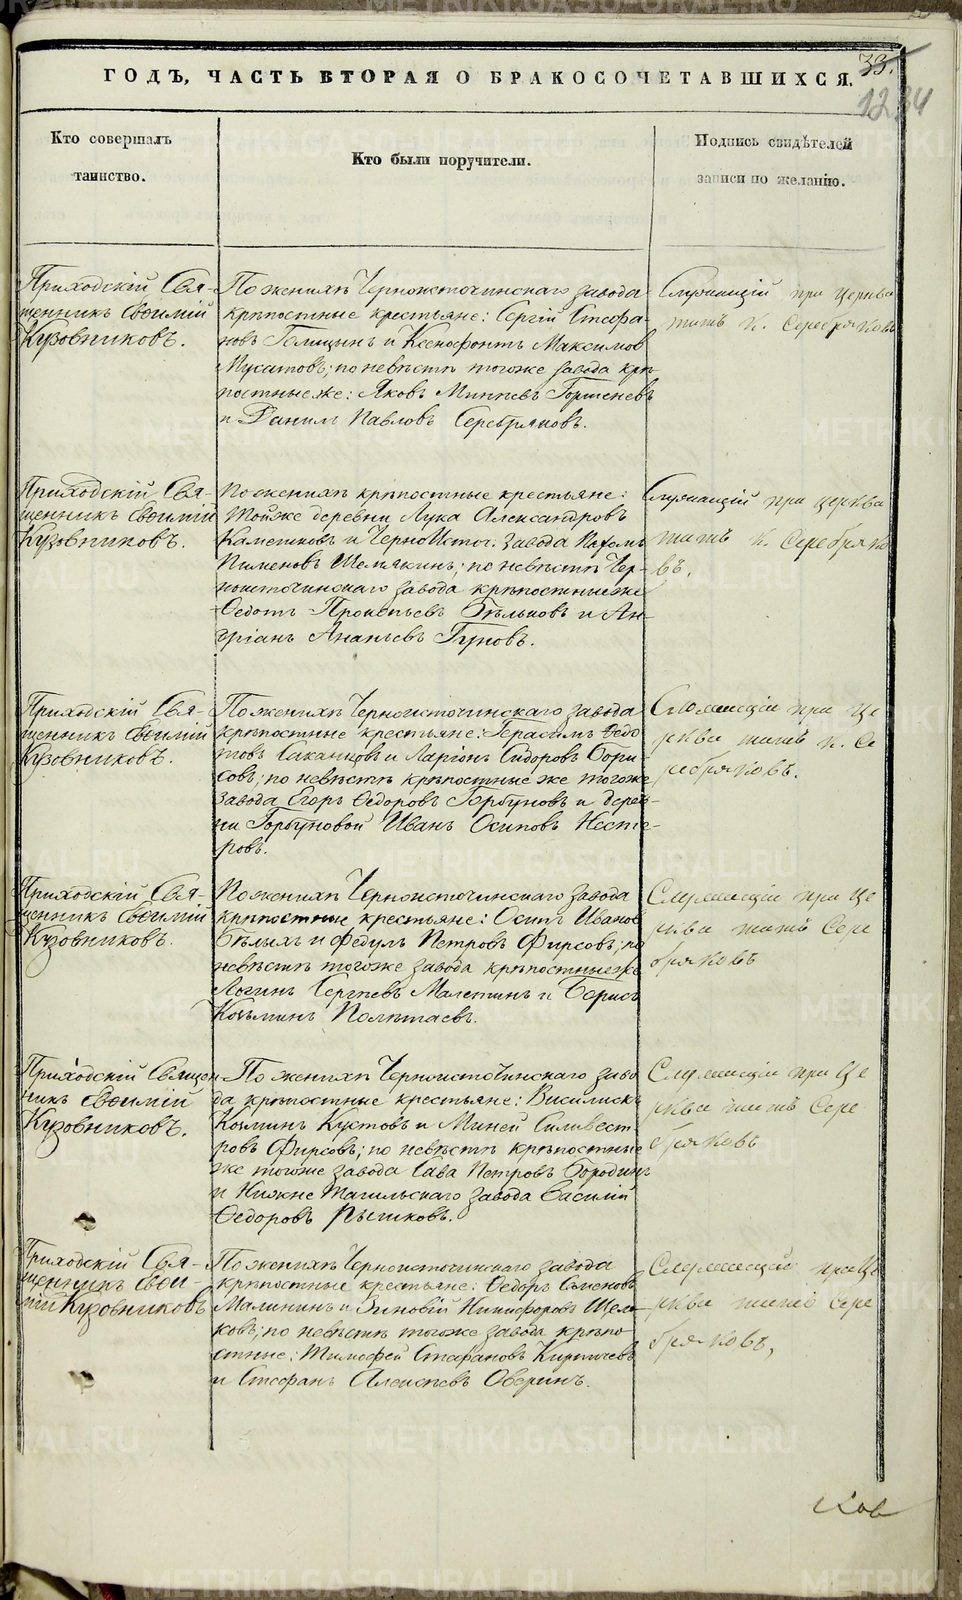 33.
ГОДЪ, ЧАСТЬ ВТОРАЯ О БРАКОСОЧЕТАВШИХСЯ.
Кто совершалъ
таинство.
Кто были поручители.
Подпись свидѣтелей
записи по желанію.
Приходскій Свя-
щенникъ Евѳимій
Кузовниковъ.
По женихѣ Черноисточинскаго завода
крѣпостные крестьяне: Сергій Стефа-
новъ Голицынъ и Ксенофонтъ Максимов
Мусатовъ; по невѣстѣ тогоже завода крѣ-
постные же: Яковъ Минѣевъ Горшеневъ
и Данилъ Павловъ Серебряковъ.
Служащій при церкве
К. Серебряковъ
Приходскій Свя-
щенникъ Евѳимій
Кузовниковъ.
По женихѣ крѣпостные крестьяне:
тойже деревни Лука Александровъ
Камешковъ и ЧерноИсточ. завода Пахомъ
Пименовъ Шемякинъ; по невѣстѣ Чер-
ноисточинскаго завода крѣпостные же
Ѳедотъ Прокопьевъ Бѣльковъ и Ан-
дріанъ Ананьевъ Гуновъ.
Служащій при церкве
К. Серебряко
въ.
Приходскій Свя-
щенникъ Евѳимій
Кузовниковъ.
По женихѣ Черноисточинскаго завода
крѣпостные крестьяне: Герасимъ Ѳедо
товъ и Ларіонъ Сидоровъ Бори-
совъ; по невѣстѣ крѣпостные же тогоже
завода Егоръ Ѳедоровъ Горбуновъ и дерев-
ни Горбуновой Иванъ Осиповъ Несте-
ровъ.
при це
ркве К. Се
ребряковъ.
Приходскій Свя-
щенникъ Евѳимій
Кузовниковъ.
По женихѣ Черноисточинскаго завода
крѣпостные крестьяне: Осипъ Иванов
Бѣлыхъ и Федулъ Петровъ Фирсовъ; по
невѣстѣ тогоже завода крѣпостные же
Логинъ Сергѣевъ Малетинъ и Борисъ
Козьминъ Полѣтаевъ.
при це
ркве Сере
бряковъ
Приходскій Священ-
никъ Евѳимій
Кузовниковъ.
По женихѣ Черноисточинскаго заво
да крѣпостные крестьяне: Василискъ
Козьминъ Кустовъ и Миней Силивест
ровъ Фирсовъ; по невѣстѣ крѣпостные
же тогоже завода Сава Петровъ Бородинъ
и Нижне Тагильскаго завода Василій
Ѳедоровъ Рычковъ.
при це
ркве Сере
бряковъ
Приходскій Свя-
щенникъ Евѳи-
мій Кузовниковъ
По женихѣ Черноисточинскаго завода
крѣпостные крестьяне: Ѳедоръ Семеновъ
Малининъ и Зиновій Никифоровъ Щел-
ковъ; по невѣстѣ тогоже завода крѣпо-
стные: Тимофей Стефановъ Кирпичевъ
и Стефанъ Алексѣевъ Оверинъ.
при це
ркве Сере
бряковъ,
METRIKI.GASO-URAL.RU